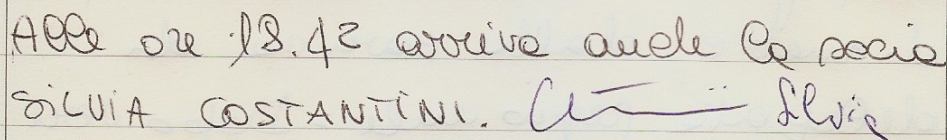 Alle ore 18.42 arriva anche la socia
SILVIA COSTANTINI. Silvia